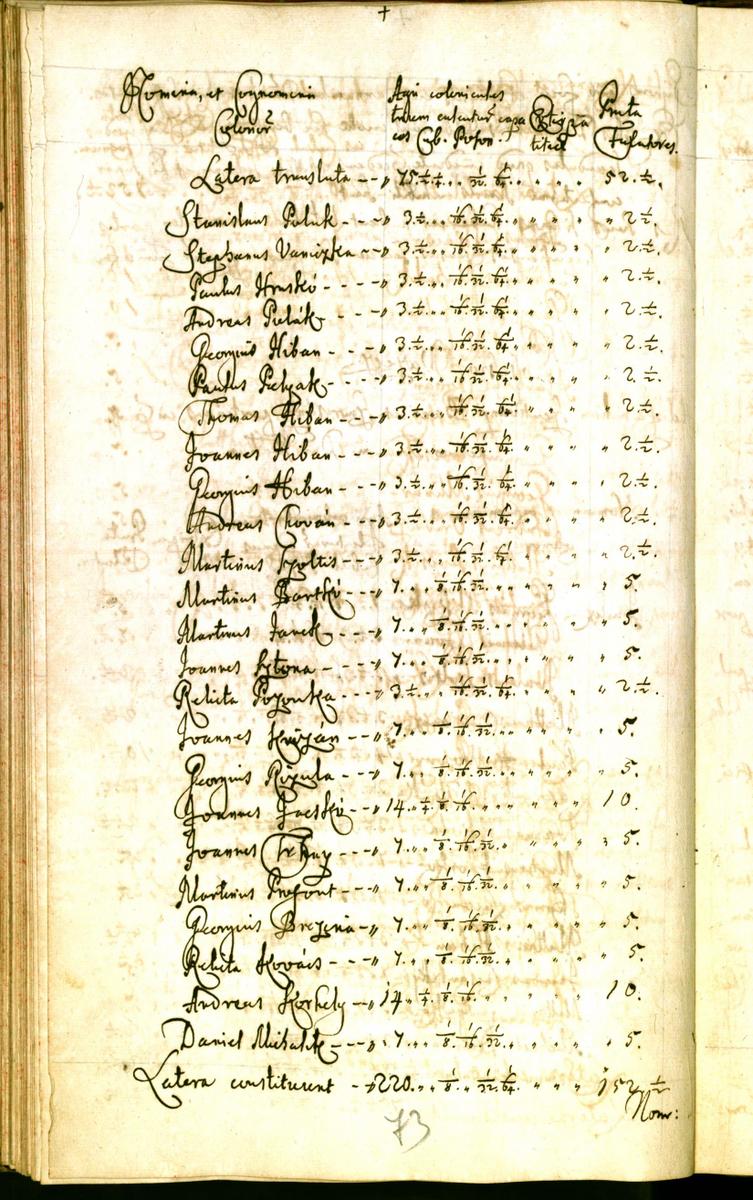 Nomina, et Cognomina Colonor̃
Agri colonicales
Cub. Poson.
Latera translata - - „ 75. 1/2. 1/4. „ „ 1/32. 1/64. „ „ „ „ 52. 1/2.
Stanislaus Polak - - - „ 3. 1/2. „ „ 1/16. 1/32. 1/64. „ „ „ „ „ 2 1/2.
Stephanus - - „ 3. 1/2. „ „ 1/16. 1/32. 1/64. „ „ „ „ „ 2. 1/2.
Paulus Hrusko - - - - „ 3. 1/2. „ „ 1/16. 1/32. 1/64. „ „ „ „ „ 2. 1/2.
Andreas Polák - - - „ 3. 1/2. „ „ 1/16. 1/32. 1/64. „ „ „ „ „ 2. 1/2.
Georgius Hiban - - - „ 3. 1/2. „ „ 1/16. 1/32. 1/64. „ „ „ „ „ 2. 1/2.
Paulus - - - „ 3. 1/2. „ „ 1/16. 1/32. 1/64. „ „ „ „ „ 2. 1/2.
Thomas Hiban - - - „ 3. 1/2. „ „ 1/16. 1/32. 1/64. „ „ „ „ 2. 1/2.
Joannes Hiban - - - „ 3. 1/2. „ „ 1/16. 1/32. 1/64. „ „ „ „ 2. 1/2.
Georgius Hiban - - - „ 3. 1/2. „ „ 1/16. 1/32. 1/64. „ „ „ „ 2. 1/2.
Andreas Chován - - - „ 3. 1/2. „ „ 1/16. 1/32. 1/64. „ „ „ „ 2. 1/2.
Martinus Szoltis - - - „ 3. 1/2. „ „ 1/16. 1/32. 1/64. „ „ „ „ 2. 1/2.
Martinus Bartko - - - „ 7. „ „ 1/8. 1/16. 1/32. „ „ „ „ „ 5.
Martinus Janek - - - „ 7. „ „ 1/8. 1/16. 1/32. „ „ „ „ „ 5.
Joannes - - - „ 7. „ „ 1/8. 1/16. 1/32. „ „ „ „ „ 5.
Relicta - - - „ 3. 1/2. „ „ 1/16. 1/32. 1/64. „ „ „ „ 2 1/2.
Joannes - - „ 7. „ „ 1/8. 1/16. 1/32. „ „ „ „ „ 5.
Georgius - - - „ 7. „ „ 1/8. 1/16. 1/32. „ „ „ „ „ 5.
Joannes Jacsko - - „ 14. „ 1/4. 1/8. 1/16. „ „ „ „ „ 10.
Joannes - - - „ 7. „ „ 1/8. 1/16. 1/32. „ „ „ „ 5.
Martinus - - „ 7. „ „ 1/8. 1/16. 1/32. „ „ „ „ 5.
Georgius Brezina - „ 7. „ „ 1/8. 1/16. 1/32. „ „ „ „ 5.
Relicta Kovács - - - „ 7. „ „ 1/8. 1/16. 1/32. „ „ „ „ 5.
Andreas Korhely - „ 14. „ 1/4. 1/8. 1/16. „ „ „ „ „ 10.
Daniel Michalik - - - „ 7. „ „ 1/8. 1/16. 1/32. „ „ „ „ 5.
Latera constituunt - „ 220. „ „ 1/8. „ 1/32. 1/64. „ „ „ 152. 1/2
73